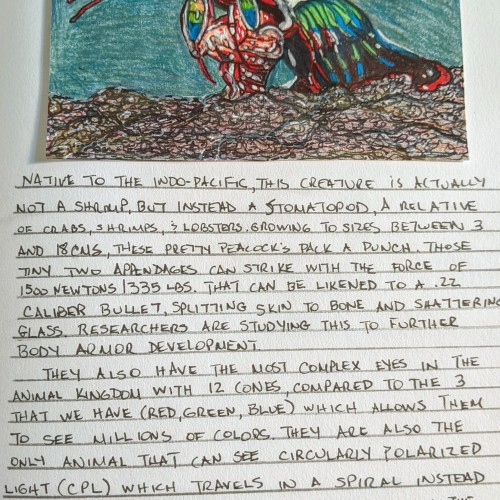 NATIVE TO THE INDO-PACIFIC, THIS CREATURE IS ACTUALLY
NOT A SHRIMP, BUT INSTEAD A STOMATOPOD, A RELATIVE
OF CRABS, SHRIMPS, & LOBSTERS. GROWING TO SIZES BETWEEN 3
AND 18 CMS, THESE PRETTY PEACOCK'S PACK A PUNCH. THOSE
TINY TWO APPENDAGES CAN STRIKE WITH THE FORCE OF
1500 NEWTONS/335 LBS. THAT CAN BE LIKENED TO A .22
CALIBER BULLET, SPLITTING SKIN TO BONE AND SHATTERING
GLASS. RESEARCHERS ARE STUDYING THIS TO FURTHER
BODY ARMOR DEVELOPMENT
THEY ALSO HAVE THE MOST COMPLEX EYES IN THE
ANIMAL KINGDOM WITH 12 CONES, COMPARED TO THE 3
THAT WE HAVE (RED, GREEN, BLUE) WHICH ALLOWS THEM
TO SEE MILLIONS OF COLORS. THEY ARE ALSO THE
ONLY ANIMAL THAT CAN SEE CIRCULARLY POLARIZED
LIGHT (CPL) WHICH TRAVELS IN A SPIRAL INSTEAD